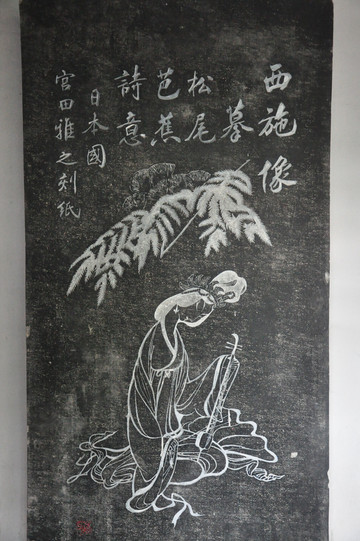 西施像
摹
松尾
芭蕉
詩意
日本國
宮田雅之刻紙